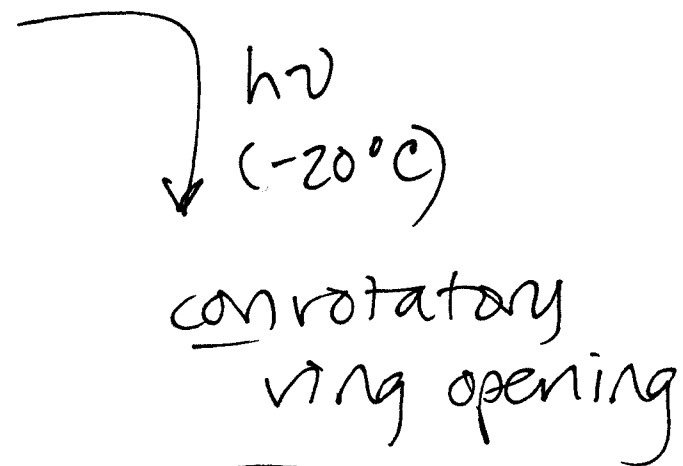 hν
(-20°C)
conrotatory
ring opening